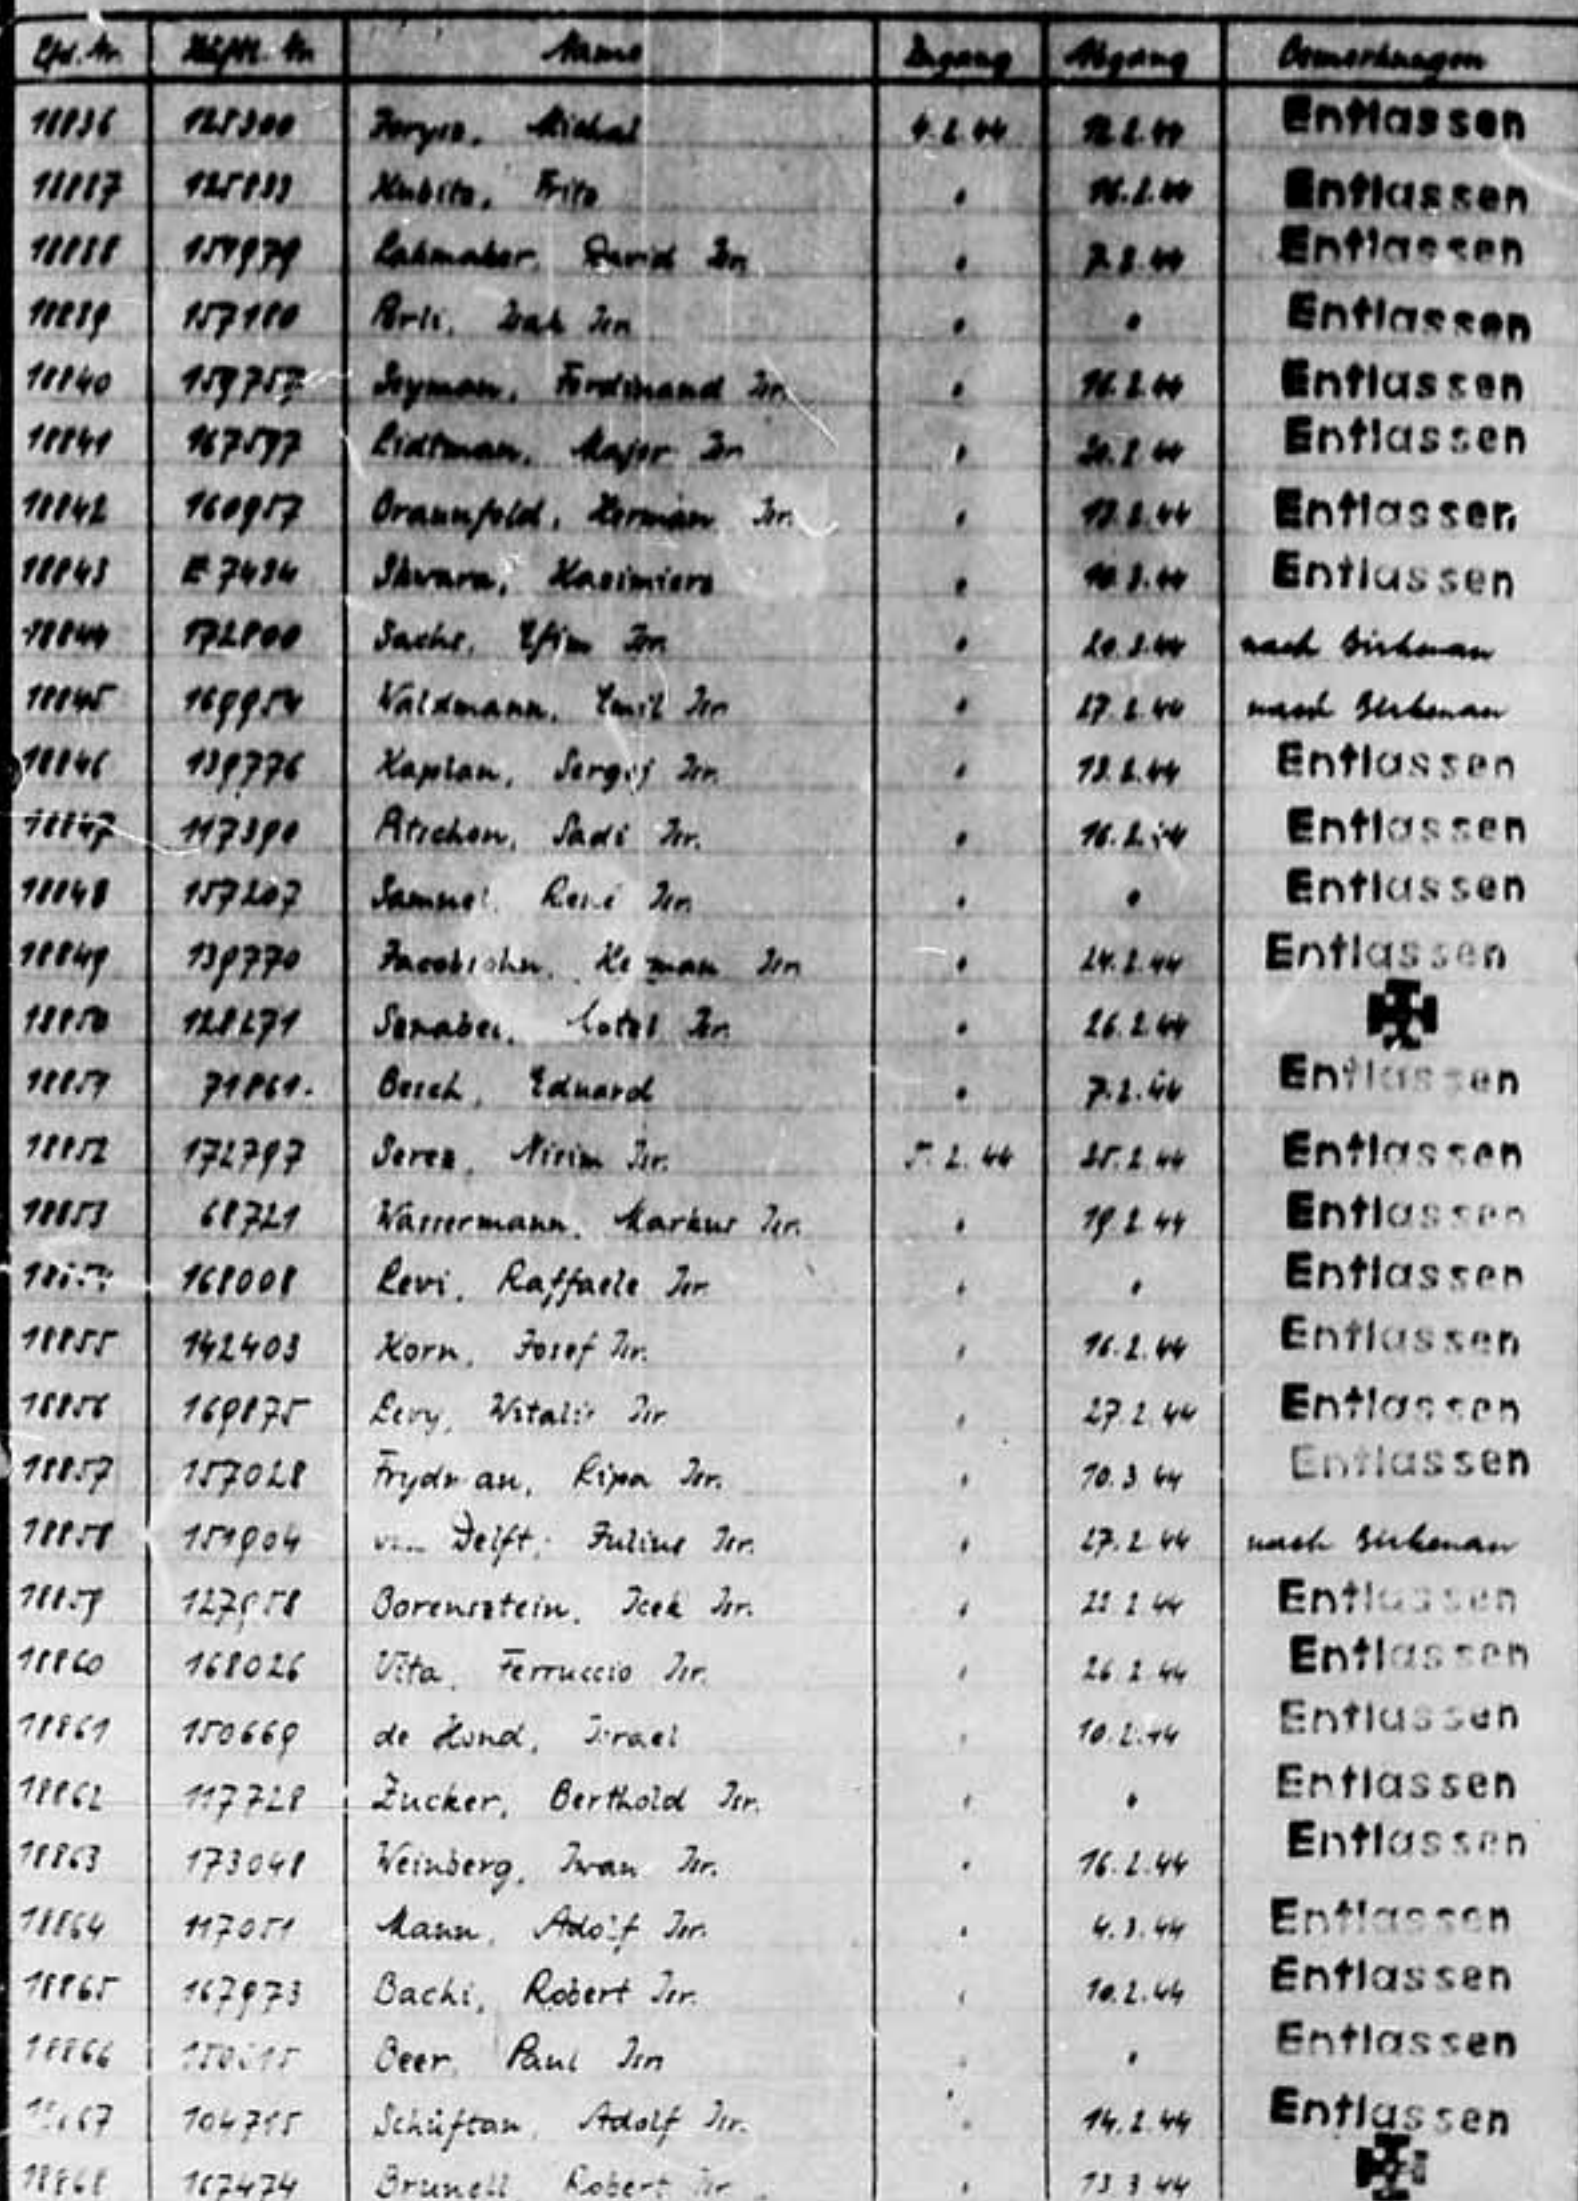 Lfd. Nr. Häftl. Nr. Name Zugang Abgang Bemerkungen
18836 128300 Michal 4.2.44 12.2.44 Entlassen
18837 125833 Kubitz, Fritz " 16.2.44 Entlassen
18838 David Isr. " 7.2.44 Entlassen
18839 157180 Isr. " " Entlassen
18840 159757 Ferdinand Isr. " 16.2.44 Entlassen
18841 167577 Lidtman, Major Isr. " 20.2.44 Entlassen
18842 160957 Braunfeld, Herman Isr. " Entlassen
18843 E 7434 Skwara, Kasimierz " Entlassen
18844 172800 Isr. " 20.2.44 nach Birkenau
18845 169954 Waldmann, Emil Isr. " 27.2.44 nach Birkenau
18846 139776 Kaplan, Sergij Isr. " 13.2.44 Entlassen
18847 117390 Sadi Isr. " 16.2.44 Entlassen
18848 157207 Samuel, René Isr. " " Entlassen
18849 139770 Jacobsohn, Herman Isr. " 24.2.44 Entlassen
18850 128271 Isr. " 26.2.44
18851 71861. Besch, Eduard " 7.2.44 Entlassen
18852 172797 Nissim Isr. 5.2.44 25.2.44 Entlassen
18853 68721 Wassermann, Markus Isr. " 19.2.44 Entlassen
18854 168008 Levi, Raffaele Isr. " " Entlassen
18855 142403 Korn, Josef Isr. " 16.2.44 Entlassen
18856 169875 Levy, Witalis Isr. " 27.2.44 Entlassen
18857 157028 Frydman, Lipa Isr. " 10.3.44 Entlassen
18858 151904 van Delft, Julius Isr. " 27.2.44 nach Birkenau
18859 127958 Borensztein, Icek Isr. " 22.2.44 Entlassen
18860 168026 Vita, Ferruccio Isr. " 26.2.44 Entlassen
18861 150669 de Hond, Israel " 10.2.44 Entlassen
18862 117728 Zucker, Berthold Isr. " " Entlassen
18863 173048 Weinberg, Iwan Isr. " 16.2.44 Entlassen
18864 117051 Mann, Adolf Isr. " 4.3.44 Entlassen
18865 167973 Bachi, Robert Isr. " 10.2.44 Entlassen
18866 Beer, Paul Isr. " " Entlassen
18867 104715 Schüftan, Adolf Isr. " 14.2.44 Entlassen
18868 167474 Brunell, Robert Isr. " 13.3.44